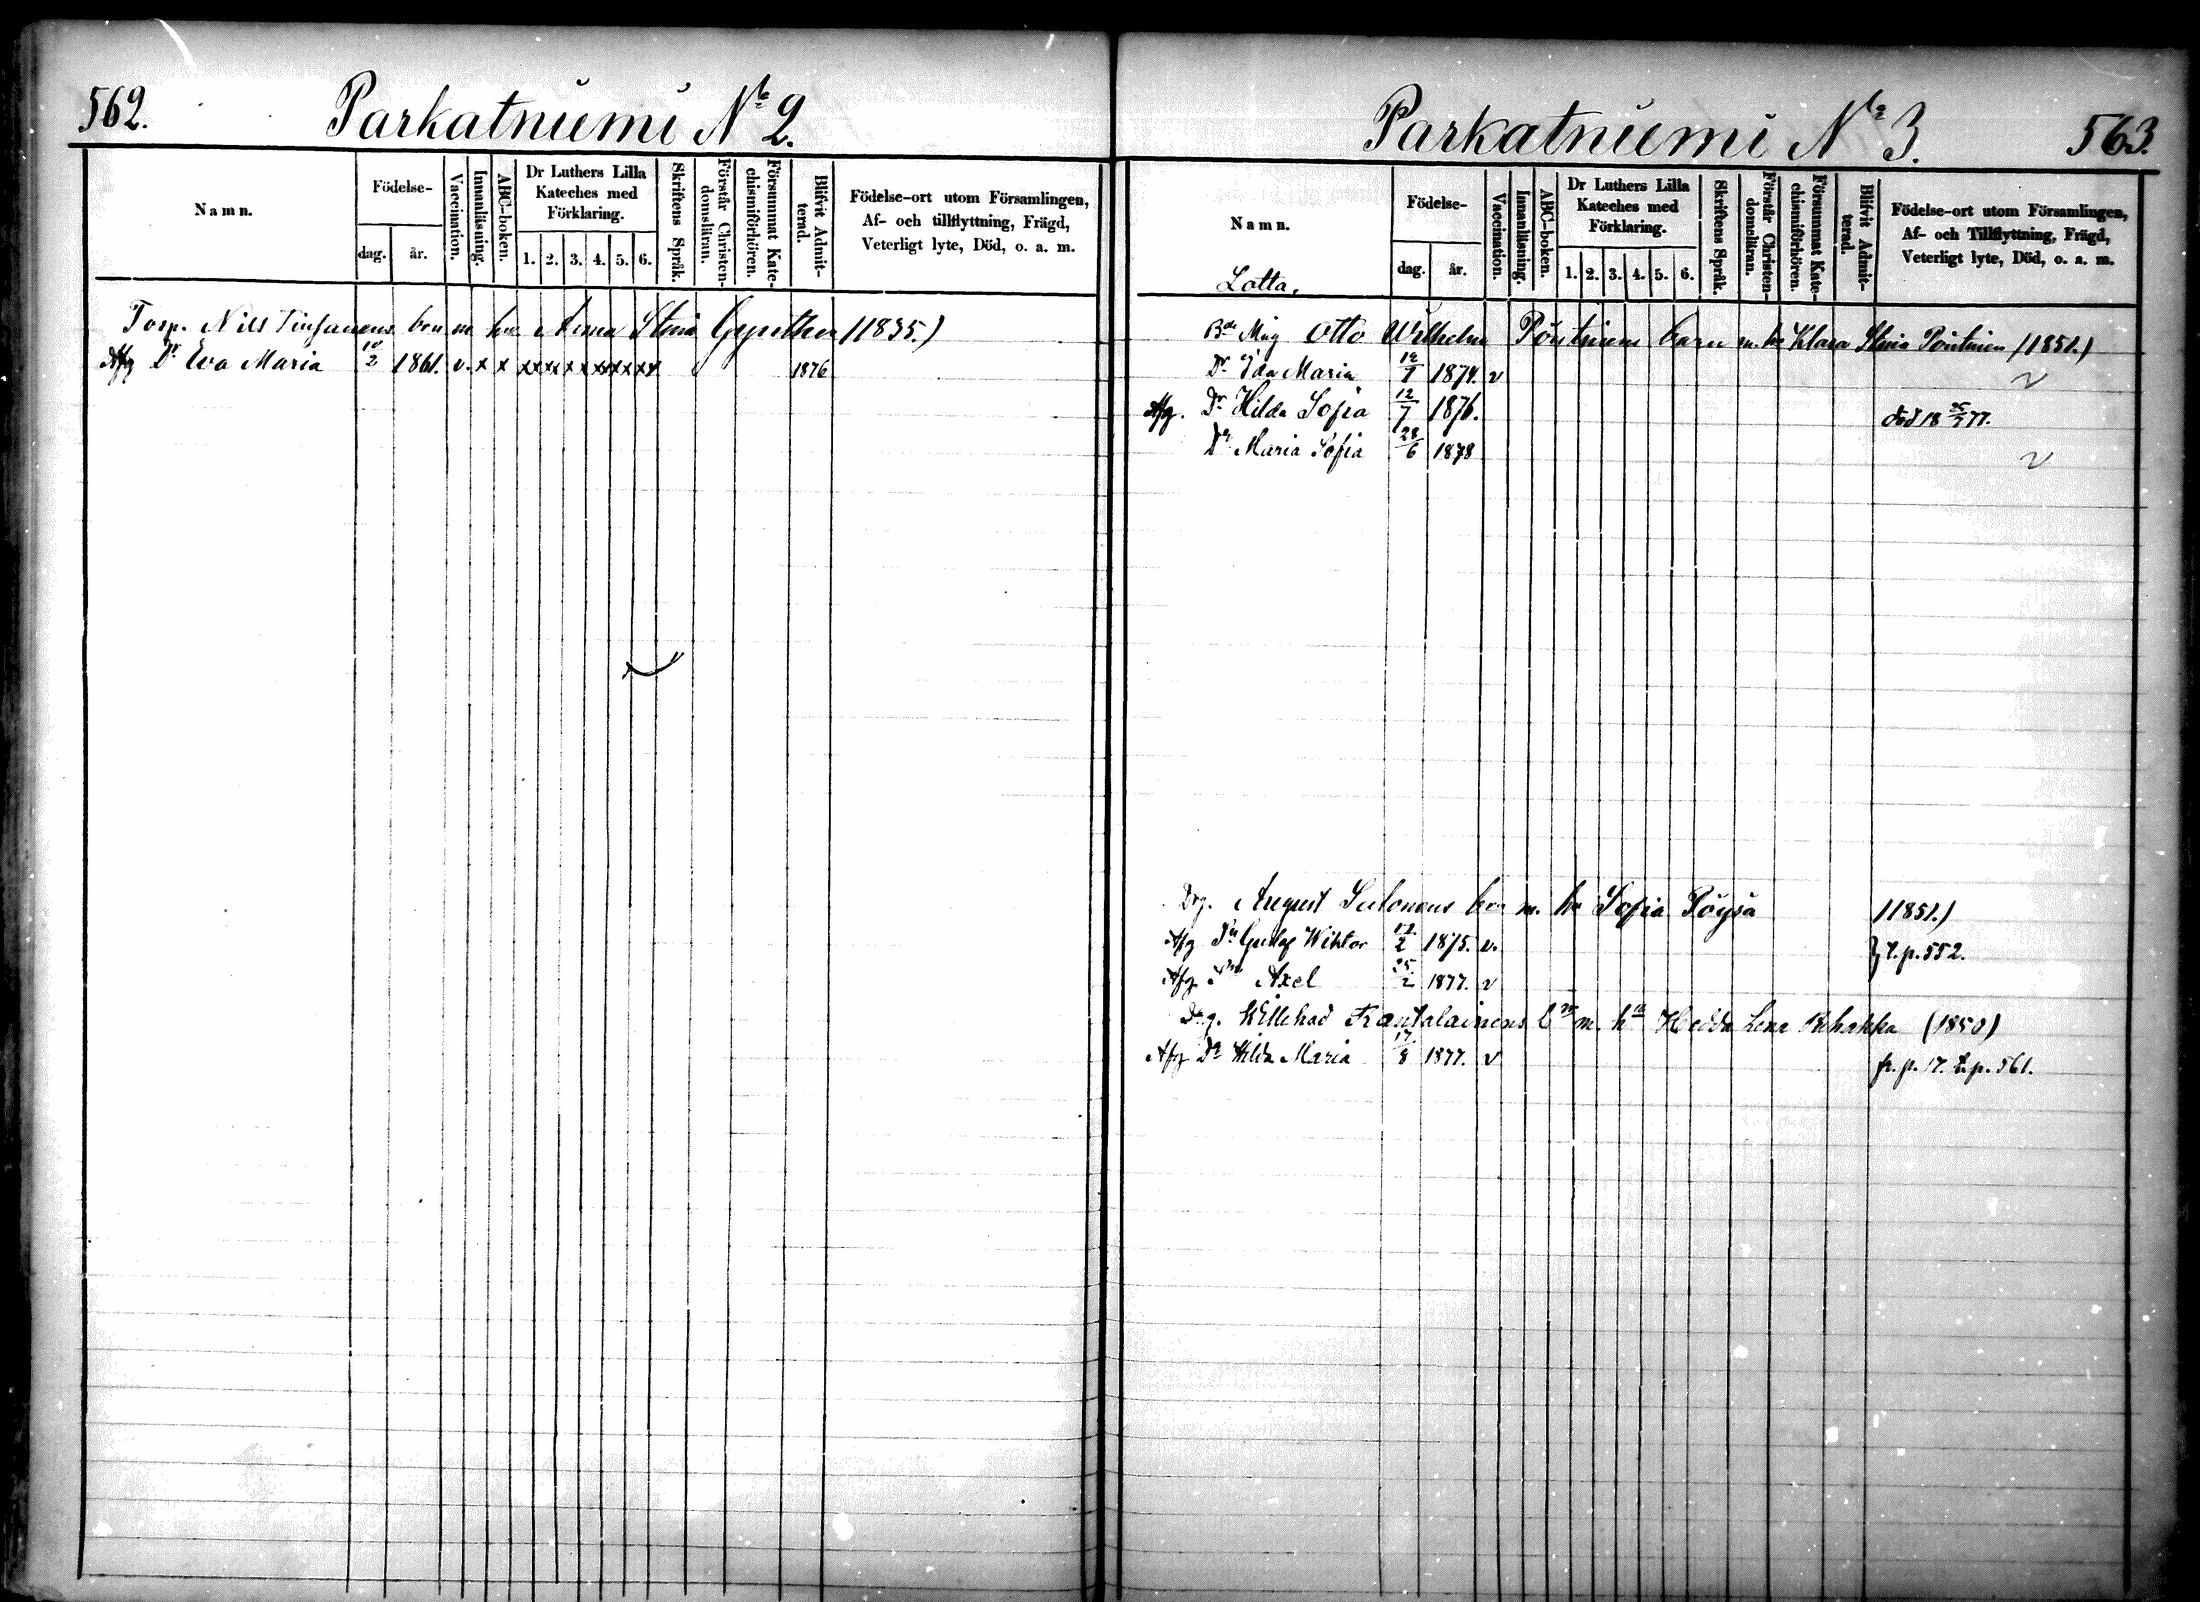 562. Parkatniemi No 2.
Namn.
Födelse-
dag.
år.
Vaccination.
Innanläsning.
ABC-boken.
Dr Luthers Lilla
Kateches med
Förklaring.
1. 2. 3. 4. 5. 6.
Skriftens Språk.
Förstår Christen-
domsläran.
Försummat Kate-
chismiförhören.
Blifvit Admit-
terad.
Födelse-ort utom Församlingen,
Af- och tillflyttning, Frägd,
Veterligt lyte, Död, o. a. m.
Torp. Nils bon m. hu. Anna Stina (1835.)
Afg Dr Eva Maria 10/2 1861. v. x x xxxxxxxxxxx 1876
Parkatniemi No 3. 563.
Namn.
Lotta.
Födelse-
dag.
år.
Vaccination.
Innanläsning.
ABC-boken.
Dr Luthers Lilla
Kateches med
Förklaring.
1. 2. 3. 4. 5. 6.
Skriftens Språk.
Förstår Christen-
domsläran.
Försummat Kate-
chismiförhören.
Blifvit Admit-
terad.
Födelse-ort utom Församlingen,
Af- och Tillflyttning, Frägd,
Veterligt lyte, Död, o. a. m.
Otto Wilhelm Pöntinens barn m. hu Klara Stina Pöntinen (1851.)
Dr Ida Maria 1874. v
Afg. Dr Hilda Sofia 12/7 1876. död 18 77.
Dr Maria Sofia 28/6 1878
Drg. August Sutonens bon m. hu Sofia Pöysä (1851.)
Afg Sn Gustaf Wiktor 12/2 1875. v. t. p. 552.
Afg Sn Axel 25/2 1877. v
Drg. Willehad Rantalainens bn m. hu Hedda Lena Rehakka (1850)
Afg Dr Hilda Maria 17/8 1877. v fr. p. 17. t. p. 561.